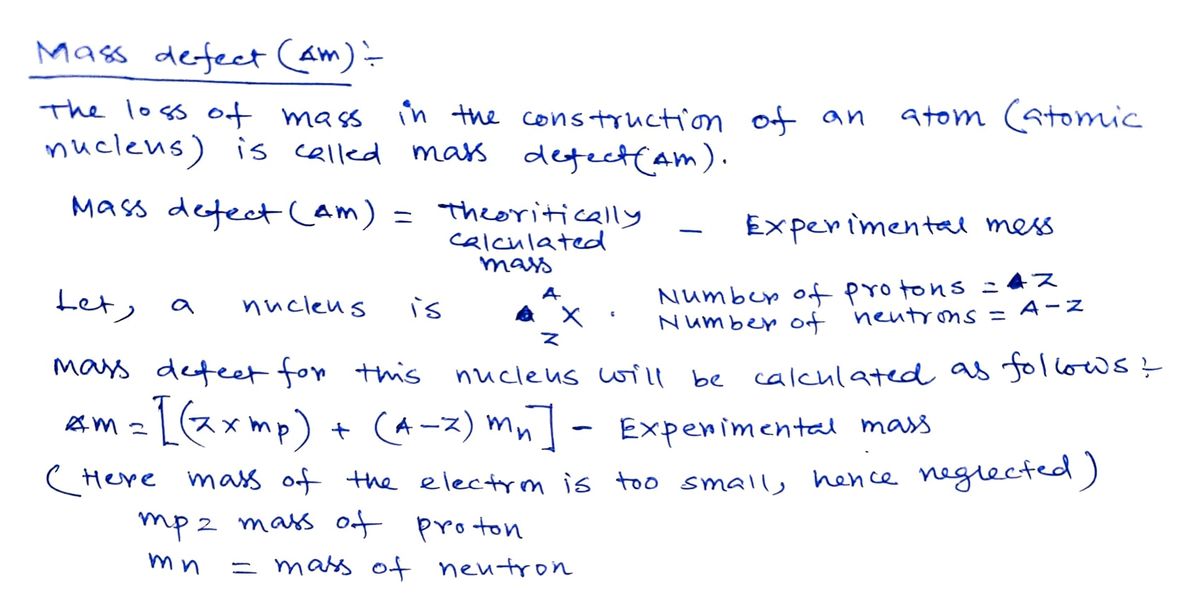 Mass defect (Δm) :-
The loss of mass in the construction of an atom (atomic
nucleus) is called mass defect (Δm).
Mass defect (Δm) = Theoritically calculated mass - Experimental mess
Let, a nucleus is ᴬ_Z X . Number of protons = Z
Number of neutrons = A-Z
Mass defect for this nucleus will be calculated as follows :-
Δm = [(Z x mp) + (A-Z) mn] - Experimental mass
(Here mass of the electron is too small, hence neglected)
mp = mass of proton
mn = mass of neutron